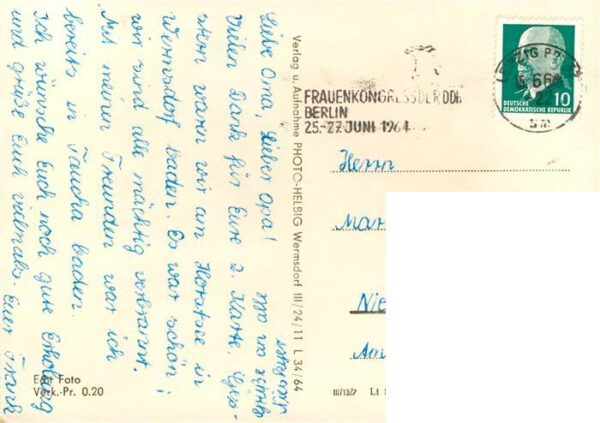 Liebe Oma, Lieber Opa!
Vielen Dank für Eure 2. Karte. Ges-
stern waren wir am Horstsee in
Wermsdorf baden. Es war schön!
wir sind alle mächtig verbrannt.
Mit meiner Freunden war ich
bereits in Taucha baden.
Ich wünsche Euch noch gute Erholung
und grüße Euch vielmals. Euer Frank
Echt Foto
Verk.-Pr. 0.20
Verlag u. Aufnahme PHOTO-HELBIG Wermsdorf III/24/11 L 34/64
FRAUENKONGRESS DER DDR
BERLIN
25.-27. JUNI 1964
LEIPZIG
DEUTSCHE
DEMOKRATISCHE REPUBLIK
10
Herrn
Mar
Nie
Am
III/13/7